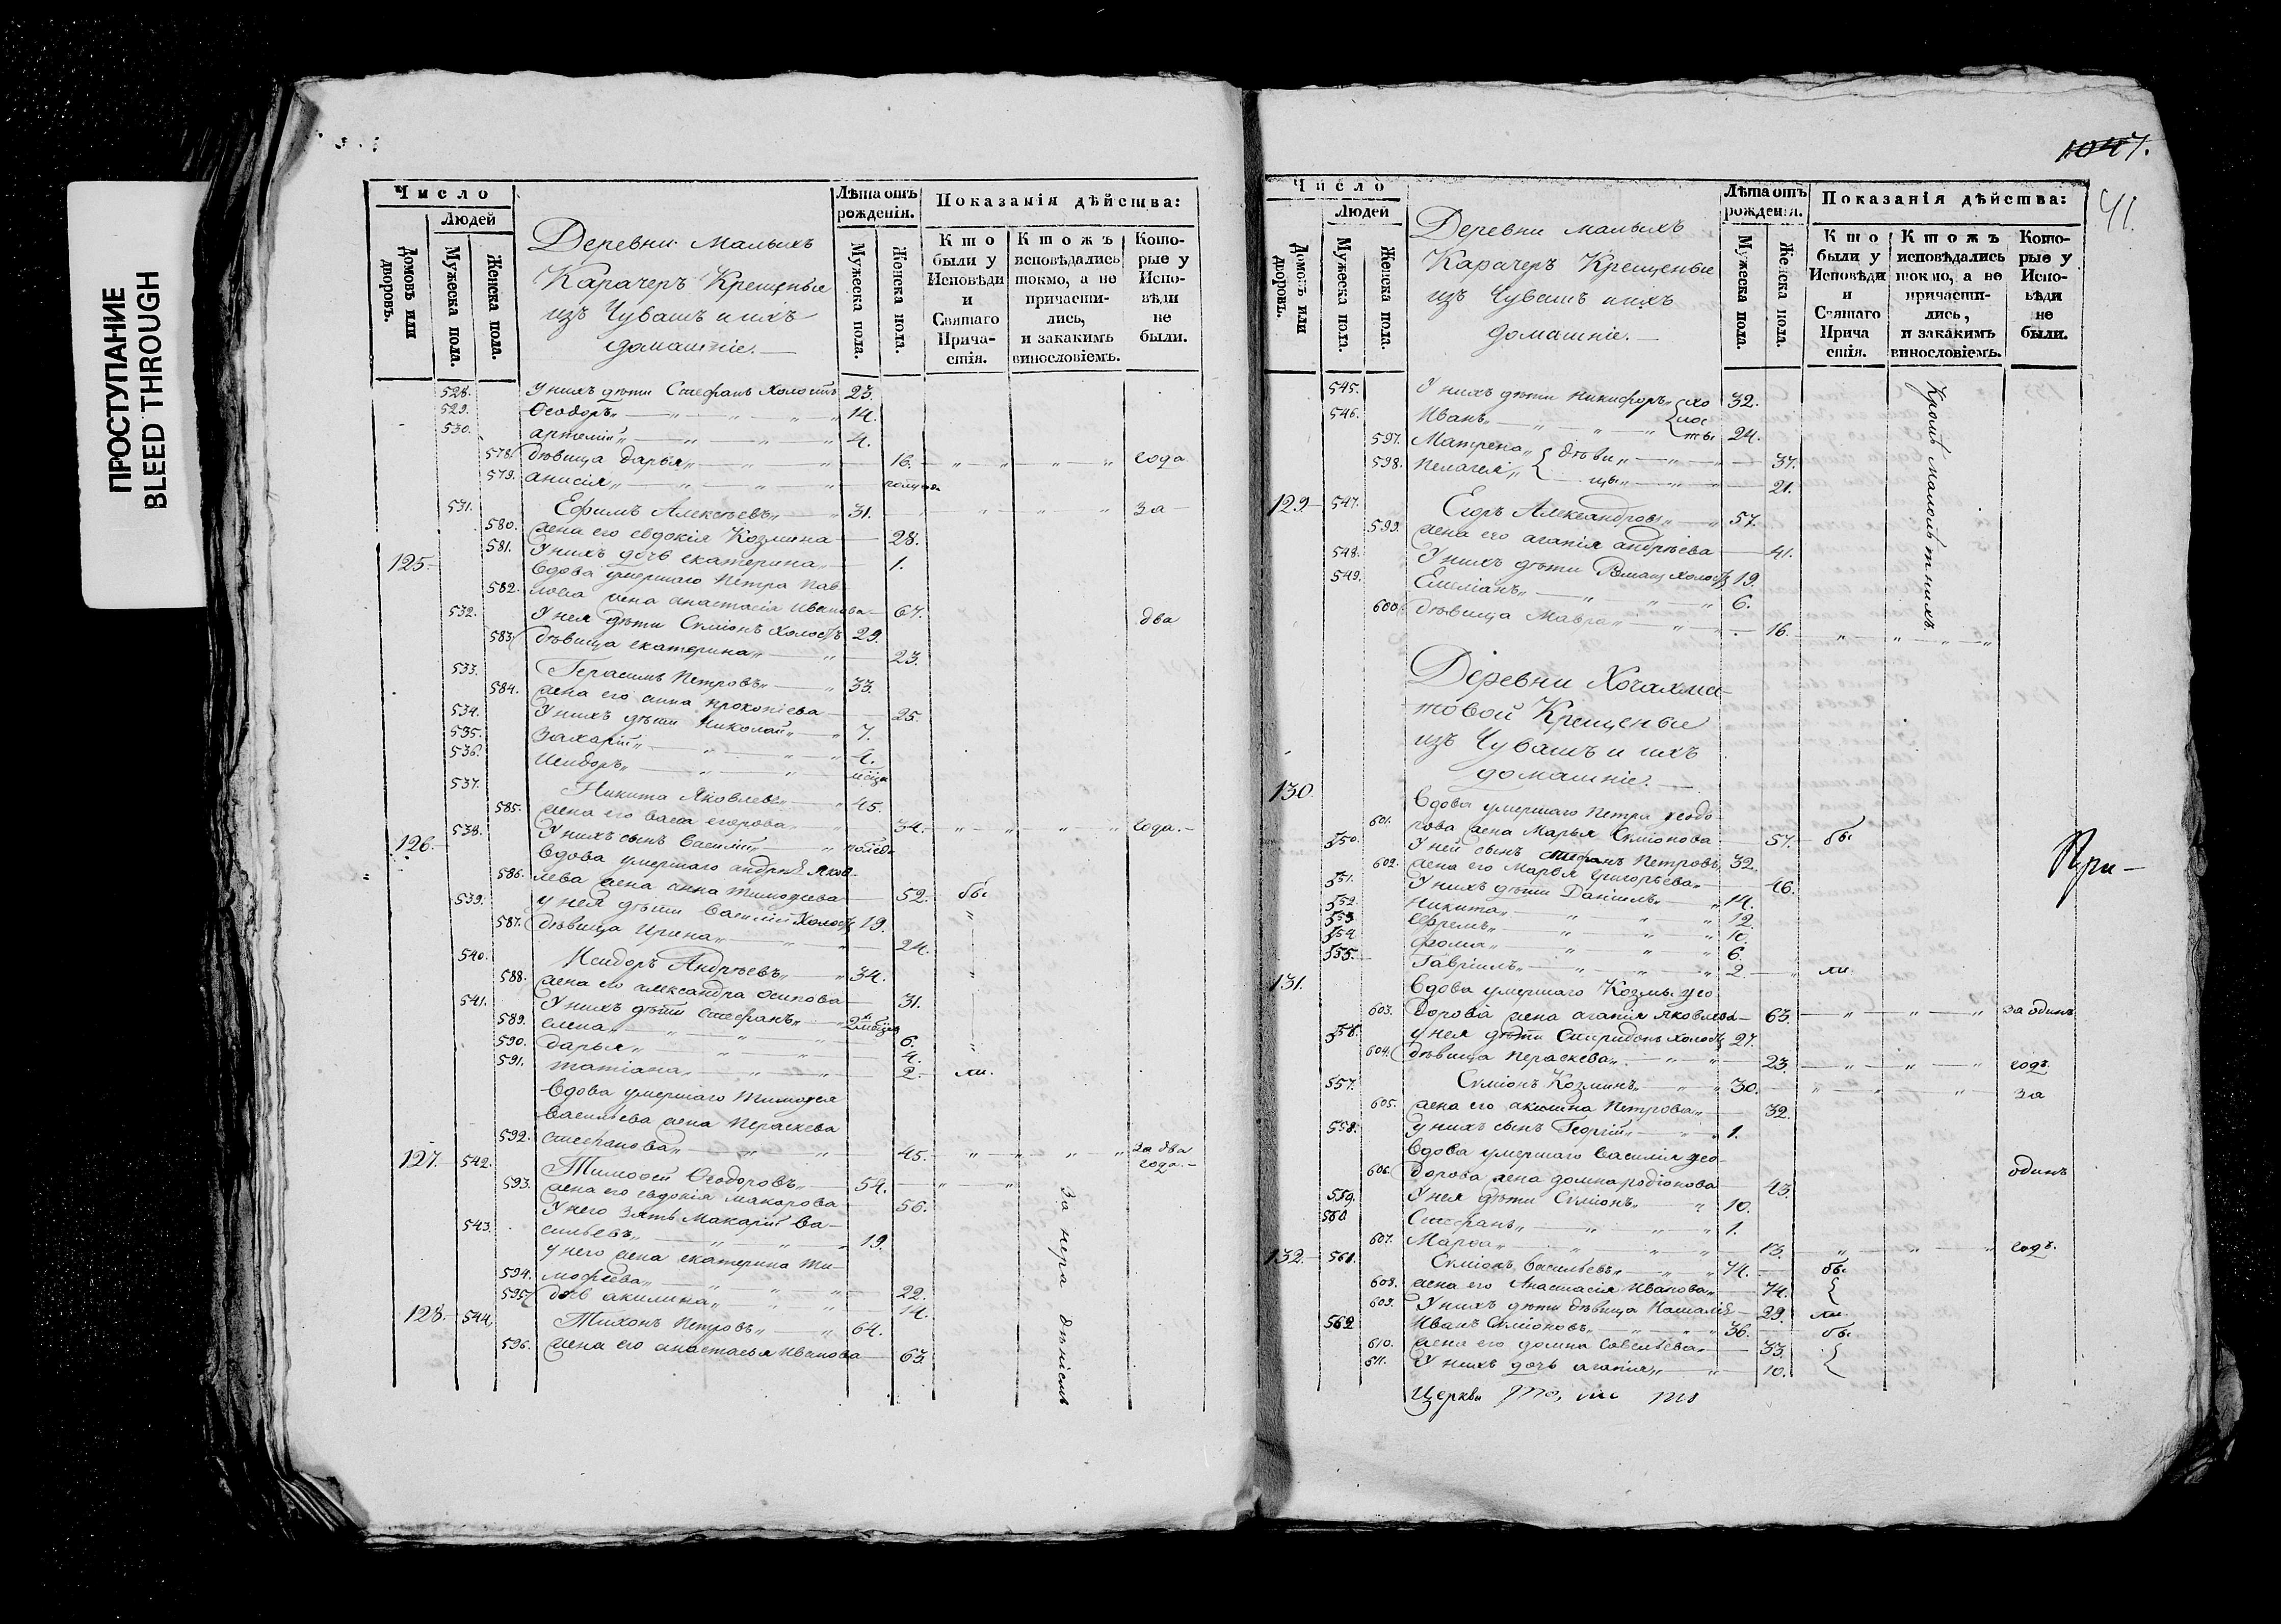 ПРОСТУПАНИЕ
BLEED THROUGH
Число
Людей
Домовъ или дворовъ.
Мужеска пола.
Женска пола.
Деревни Малыхъ
Карачеръ Крещеные
изъ Чувашъ и ихъ
домашніе.
Лѣта отъ рожденія.
Мужеска пола.
Женска пола.
Показанія дѣйства:
Кто были у Исповѣди и Святаго Причастія.
Ктожъ исповѣдались токмо, а не причастились, и закакимъ винословіемъ.
Которые у Исповѣди не были.
528. У нихъ дѣти Стефанъ холостъ 23.
529. Ѳеодоръ 14.
530. Артемій 4.
578. дѣвица Дарья 16. года
579. Анисія
531. Ефимъ Алексѣевъ 31. за
580. жена его Евдокія Козмина 28.
581. У нихъ дочь Екатерина 1.
125. Вдова умершаго Петра Пав-
582. лова жена Анастасія Иванова 67.
532. У нея дѣти Симіонъ холостъ 29. два
583. дѣвица Екатерина 23.
533. Герасимъ Петровъ 33.
584. жена его Анна Прокопіева 25.
534. У нихъ дѣти Николай 7.
535. Захарій 4.
536. Исидоръ
537. Никита Яковлевъ 45.
585. жена его Васса Егорова 34. года.
538. У нихъ сынъ Василій
126. Вдова умершаго Андрея Яков-
586. лева жена Анна Тимофеева 52. бы
539. у нея дѣти Василій холостъ 19.
587. дѣвица Ирина 24.
540. Исидоръ Андрѣевъ 34.
588. жена его Александра Осипова 31.
541. У нихъ дѣти Стефанъ
589. Елена 6.
590. Дарья 4.
591. Татіана 2. ли.
Вдова умершаго Тимофея
Васильева жена Пераскева
592. Стефанова 45. за два года.
127. 542. Тимофей Ѳеодоровъ 54.
593. жена его Евдокія Макарова 56.
У него зять Макарій Ва-
543. сильевъ 19.
у него жена Екатерина Ти-
594. мофѣева 22.
595. дочь Акилина 14.
128. 544. Тихонъ Петровъ 64.
596. жена его Анастасья Иванова 63.
За нерадѣніемъ
1047.
41.
Число
Людей
Домовъ или дворовъ.
Мужеска пола.
Женска пола.
Деревни малыхъ
Карачеръ Крещеные
изъ Чувашъ и ихъ
домашніе.
Лѣта отъ рожденія.
Мужеска пола.
Женска пола.
Показанія дѣйства:
Кто были у Исповѣди и Святаго Причастія.
Ктожъ исповѣдались токмо, а не причастились, и закакимъ винословіемъ.
Которые у Исповѣди не были.
545. У нихъ дѣти Никифоръ холосты 32.
546. Иванъ 24.
597. Матрена дѣвицы 37.
598. Пелагея 21.
129. 547. Егоръ Александровъ 57.
599. жена его Агапія Андрѣева 41.
548. У нихъ дѣти Романъ холостъ 19.
549. Емеліанъ 6.
600. дѣвица Мавра 16.
Кромѣ малолѣтнихъ
Деревни Хочахма-
товой Крещеные
изъ Чувашъ и ихъ
домашніе.
130. Вдова умершаго Петра Ѳеодо-
601. рова жена Марья Симіонова 57. бы
550. У ней сынъ Стефанъ Петровъ 32.
602. жена его Марья Григорьева 46.
551. У нихъ дѣти Даніилъ 14.
552. Никита 12.
553. Ефремъ
554. Фома 6.
555. Гавріилъ 2. ли.
131. Вдова умершаго Козмы Ѳео-
603. дорова жена Агапія Яковлева 63. за одинъ
556. у нея дѣти Спиридонъ холостъ 27.
604. дѣвица Пераскева 23. годъ
557. Симіонъ Козминъ 30. за
605. жена его Акилина Петрова 32.
558. у нихъ сынъ Георгій 1.
Вдова умершаго Василія Ѳео-
606. дорова жена Домна Родіонова 43. одинъ
559. У нея дѣти Симіонъ 10.
560 Стефанъ 1.
607. Марѳа 13. годъ.
132. 561. Симіонъ Васильевъ 74. бы
608. жена его Анастасія Иванова 74.
609. У нихъ дѣти дѣвица Наталія 29. ли
562 Иванъ Симіоновъ 36. бы
610. жена его Домна Савельева 33.
611. У нихъ дочь Агапія 10.
Церкви
При-